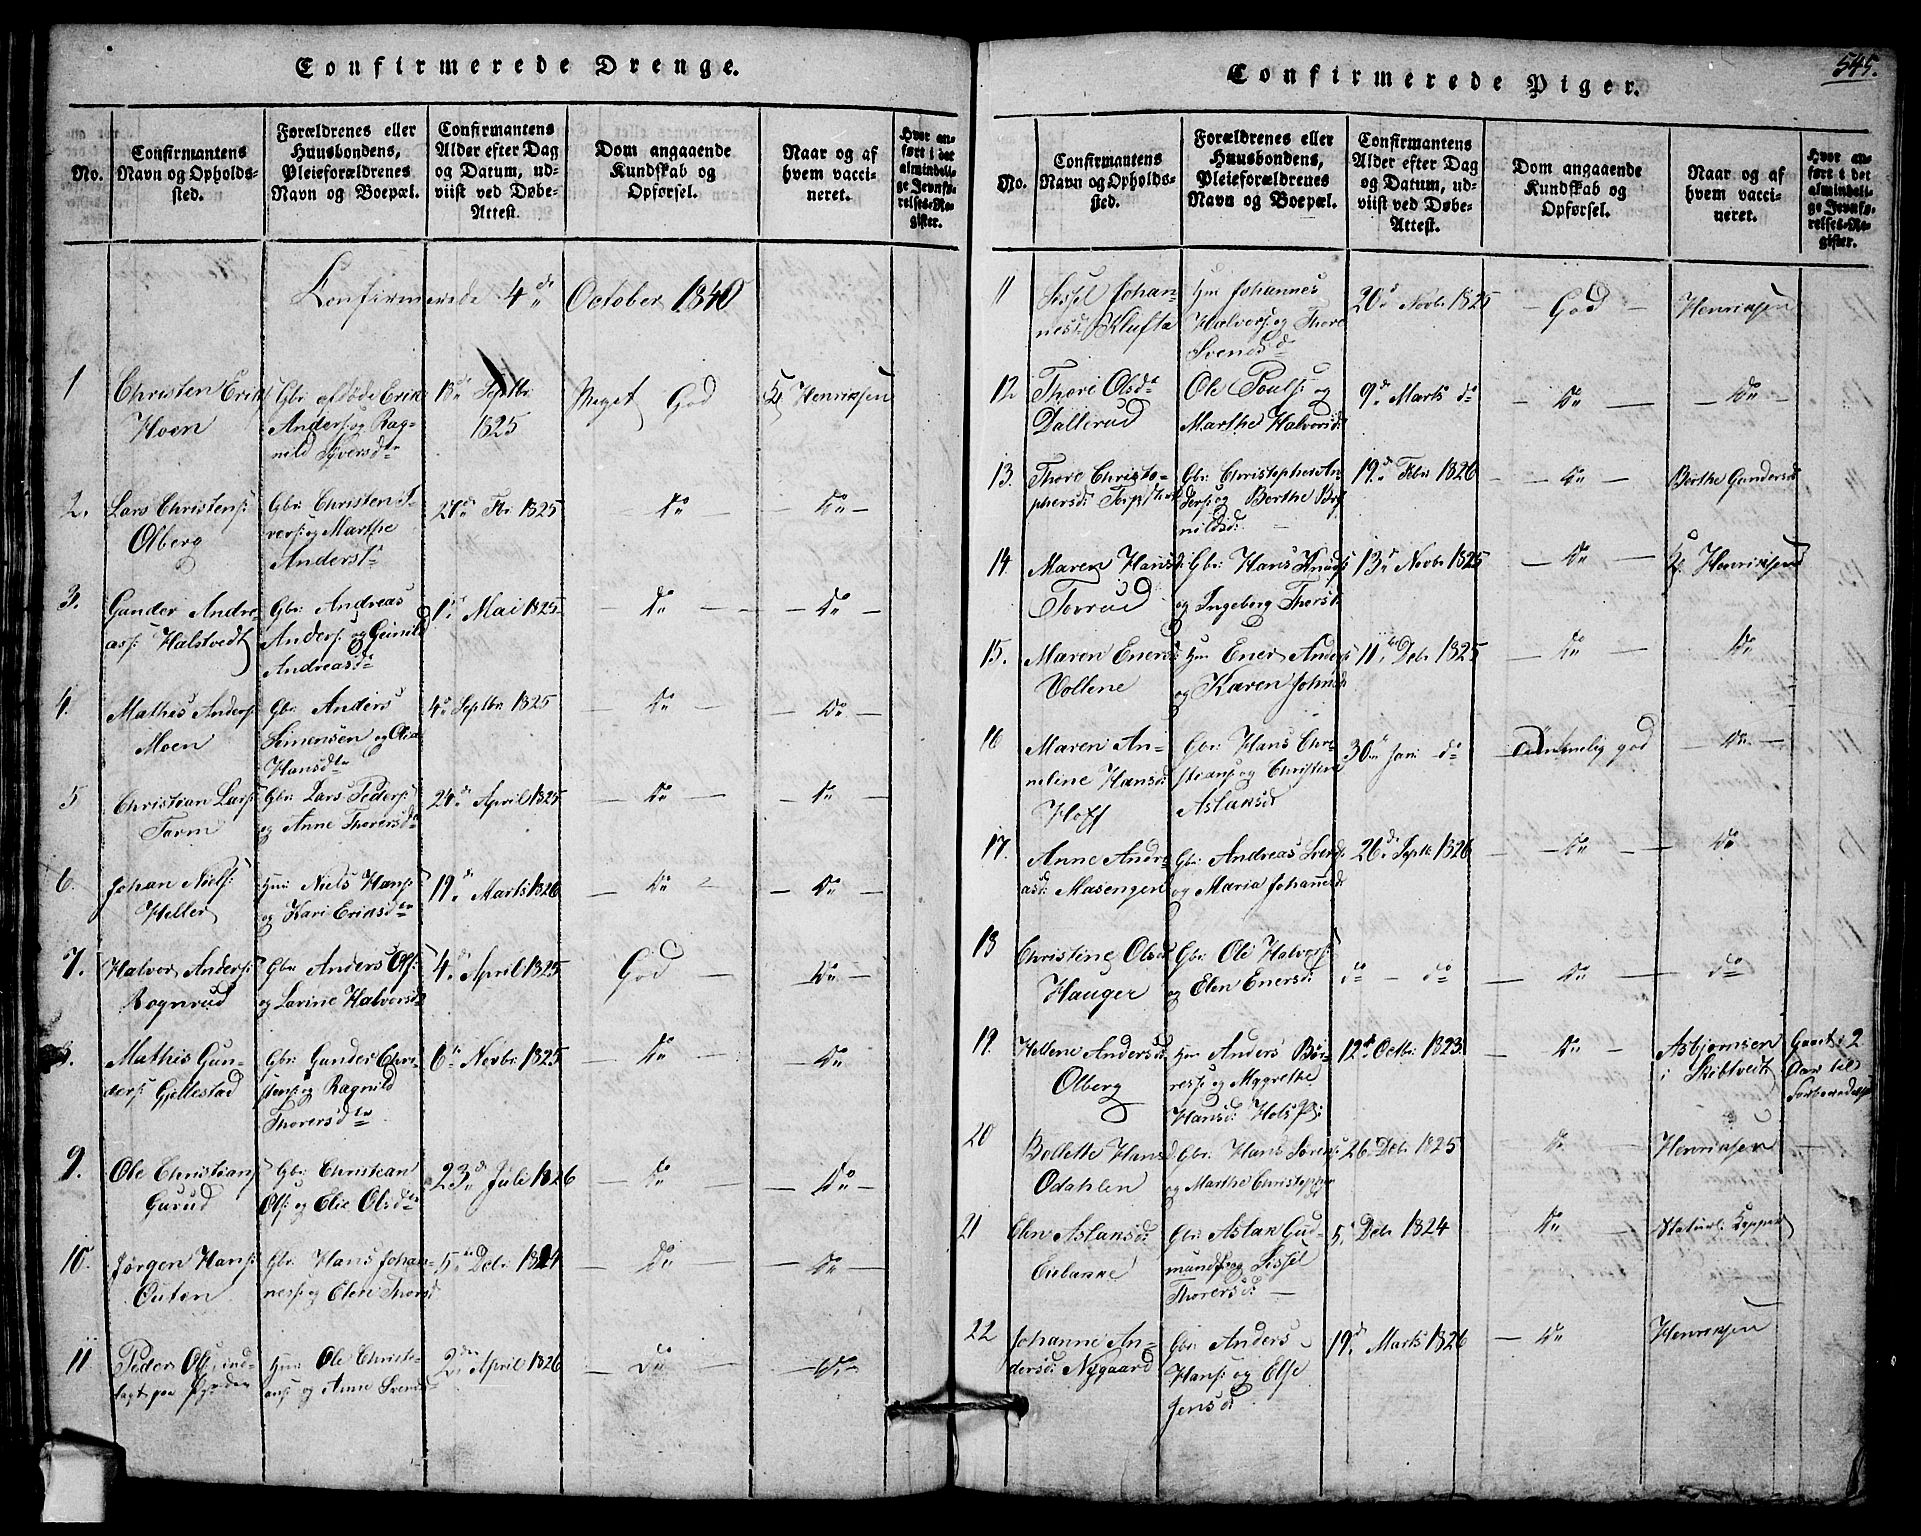 Confirmerede Drenge.
No.
Confirmantens Navn og Opholds-sted.
Forældrenes eller Huusbondens, Pleieforældrenes Navn og Boepæl.
Confirmantens Alder efter Dag og Datum, ud-viist ved Døbe-Attest.
Dom angaaende Kundskab og Opførsel.
Naar og af hvem vacci-neret.
Hvor an-ført i det almindeli-ge Jevnfø-relses-Re-gister.
Confirmerede 4de October 1840
1 Christen Erik Hoen
Gbr afdøde Erik Anders: og Rag-nild Syversdtr
13de Septbr 1825
Meget God
Henriksen
2. Lars Christens: Olberg
Gbr: Christen I-vers: og Marthe Andersd
27de Fbr 1825
do
do
3. Gunder Andre-as: Halstvedt
Gbr: Andreas Anders: og Gunild Andreasdr
1de Mai 1825
do
do
4. Mathis Anders: Moen
Gbr: Anders Simensen og Olea Hansdtr
4de Septbr 1825
do
do
5 Christian Lars: Torm
Gbr: Lars Peders: og Anne Thorersd
24de April 1825
do
do
6. Johan Niels: Heller
Hm: Niels Hans: og Kari Eriksdtr
19de Marts 1826
do
do
7. Halvor Anders: Rognrud
Gbr Anders Ols: og Larine Halversd
4de April 1825
God
do
8. Mathis Gun-ders: Gjellestad
Gbr: Gunder Chri-stens: og Ragnild Thorersdtr
6te Novbr 1825
do
do
9. Ole Christians: Gurud
Gbr: Christian Ols: og Elie Olsdtr
23de Juli 1826
do
do
10. Jørgen Hans: Outen
Gbr: Hans Johan-nes: og Elen Thorsd
5te Debr 1824
do
do
11 Peder Ols: ind-lagt paa
Hm: Ole Christi-ans: og Anne Svends
2den April 1826
do
do
545.
Confirmerede Piger.
No.
Confirmantens Navn og Opholds-sted.
Forældrenes eller Huusbondens, Pleieforældrenes Navn og Boepæl.
Confirmantens Alder efter Dag og Datum, ud-viist ved Døbe-Attest.
Dom angaaende Kundskab og Opførsel.
Naar og af hvem vacci-neret.
Hvor an-ført i det almindeli-ge Jevnfø-relses-Re-gister.
11 Sissel Johan-nesd: Klufta
Hm Johannes Halvors: og Thore Svensd
20de Novbr 1825
God
Henriksen
12 Thore Olsdr Dallerud
Ole Pouls: og Marthe Halvorsd:
9de Marts do
do
do
13. Thore Christo-phersd: Torp
Gbr: Christopher An-ders: og Berthe
19de Febr 1826
do
Berthe Gundersd
14 Maren Hansd: Tovrud
Gbr: Hans Knuds: og Ingeborg Thorsd:
13de Novbr 1825
do
Henriksen
15. Maren Enersd: Vollene
Hm Ener Anders: og Karen Johnsd:
11te Debr 1825
do
do
16 Maren An-nelene Hansd: Hoff
Gbr: Hans Chri-stians: og Christine Aslaksd
30de Jan: do
Temmelig god
do
17. Anne Andre-asd: Masengen
Gbr: Andreas Svend: og Maria Johannesd
26de Septb 1826
do
do
18 Christine Olsd Hauger
Gbr: Ole Halvors: og Elen Enersd:
do do
do
do
19. Hellene Andersd: Olberg
Hm Anders Bør-res: og Mygrethe Hansd: Hols
12te Octbr 1823
do
Asbjørnsen i Skibtvedt
Gaaet i 2 Aar til Forberedelse
20 Bollette Hansd Odahlen
Gbr: Hans Sørens: og Marthe Christopher
26 Debr 1825
do
Henriksen
21 Elen Aslaksd: Eiebakke
Gbr: Aslak Gud-munds: og Sissel Thorersd:
5. Debr 1824
do
Naturl. Kopper
22 Johanne An-dersd: Nygaard
Gbr: Anders Hans: og Else Jensd:
19de Marts 1826
do
Henriksen